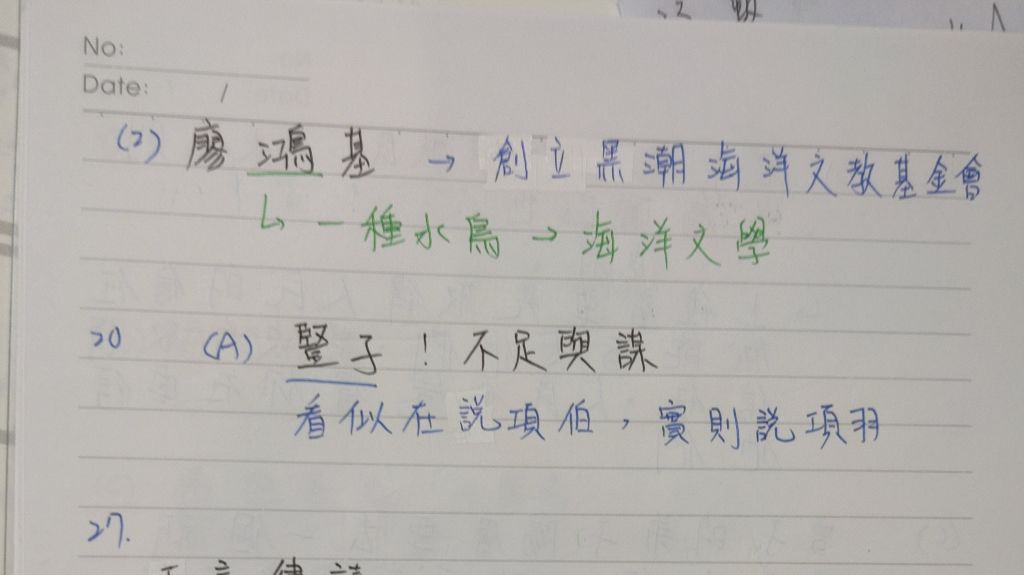 No:
Date: /
(2) 廖鴻基 → 創立黑潮海洋文教基金會
↳ 一種水鳥 → 海洋文學
20 (A) 豎子！不足與謀
看似在說項伯，實則說項羽
27.